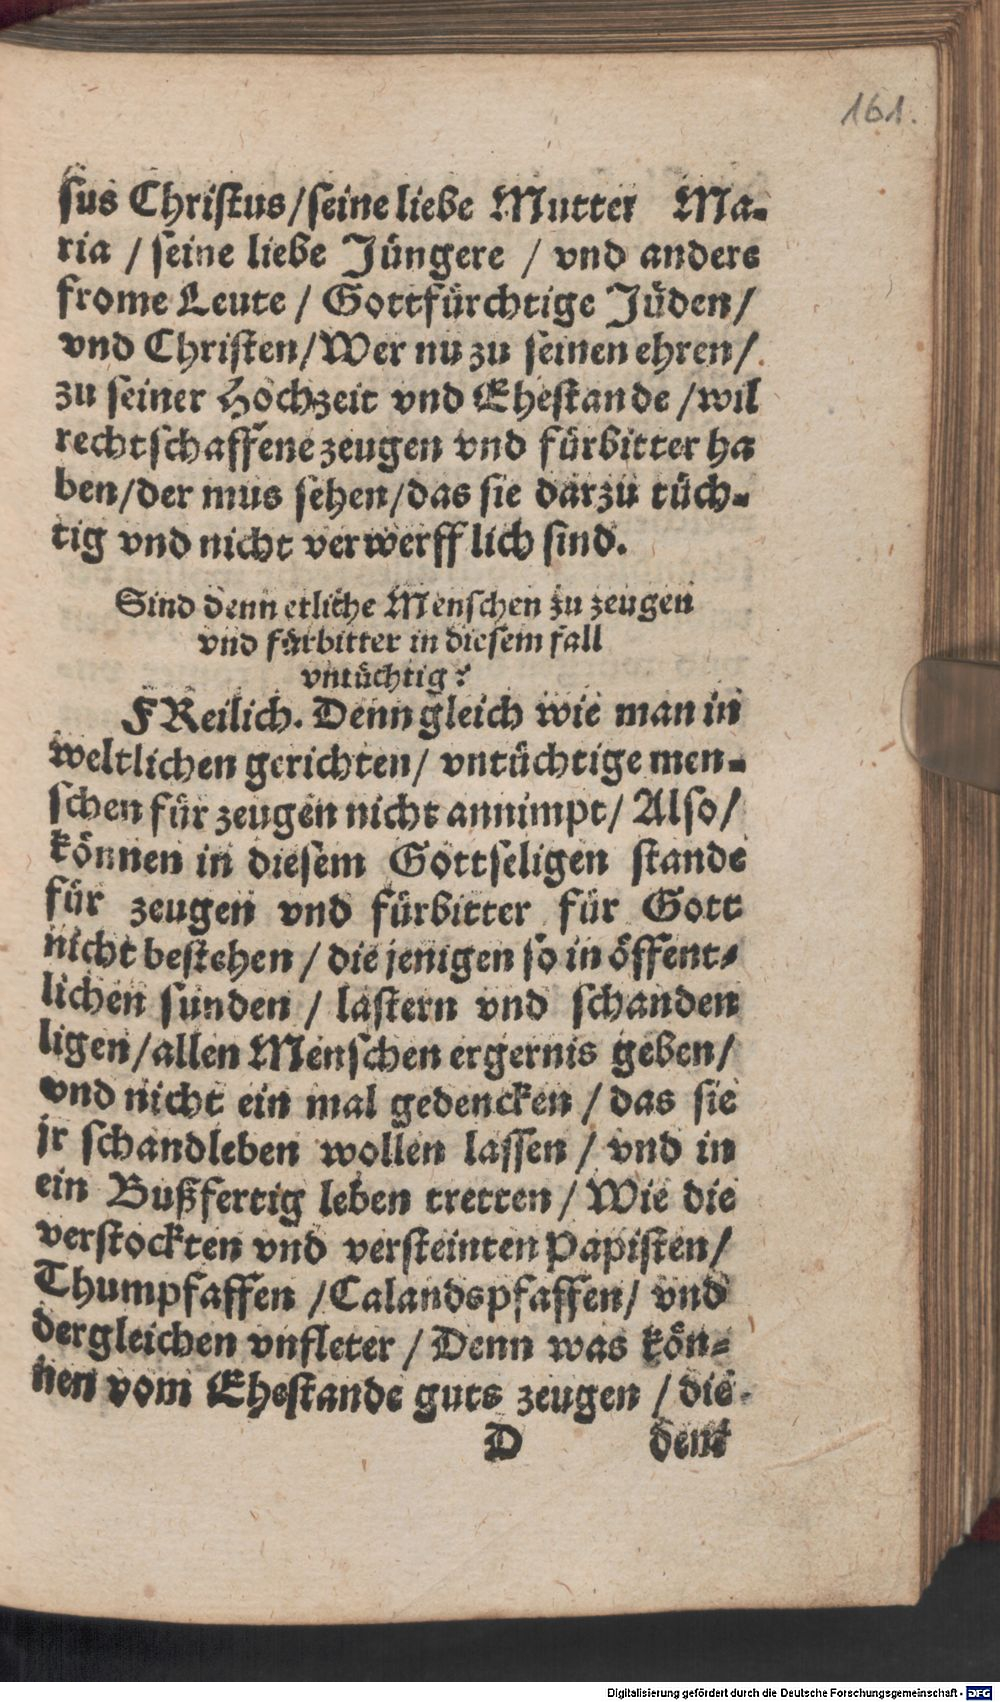 161.
sus Christus/seine liebe Mutter Ma-
ria / seine liebe Jüngere / vnd anders
frome Leute / Gottfürchtige Jüden/
vnd Christen/Wer nu zu seinen ehren/
zu seiner Hochzeit vnd Ehestande /wil
rechtschaffene zeugen vnd fürbitter ha
ben/der mus sehen/das sie darzu tüch-
tig vnd nicht verwerfflich sind.
Sind denn etliche Menschen zu zeugen
vnd fürbitter in diesem fall
vntüchtig?
FReilich. Denn gleich wie man in
weltlichen gerichten/ vntüchtige men-
schen für zeugen nicht annimpt/ Also/
können in diesem Gottseligen stande
für zeugen vnd fürbitter für Gott
nicht bestehen / die jenigen so in öffent-
lichen sunden / lastern vnd schanden
ligen/allen Menschen ergernis geben/
vnd nicht ein mal gedencken / das sie
jr schandleben wollen lassen / vnd in
ein Bußfertig leben tretten / Wie die
verstockten vnd versteinten Papisten/
Thumpfaffen /Calandspfaffen/ vnd
dergleichen vnfleter / Denn was kön-
nen vom Ehestande guts zeugen / die
D dem
Digitalisierung gefördert durch die Deutsche Forschungsgemeinschaft - DFG